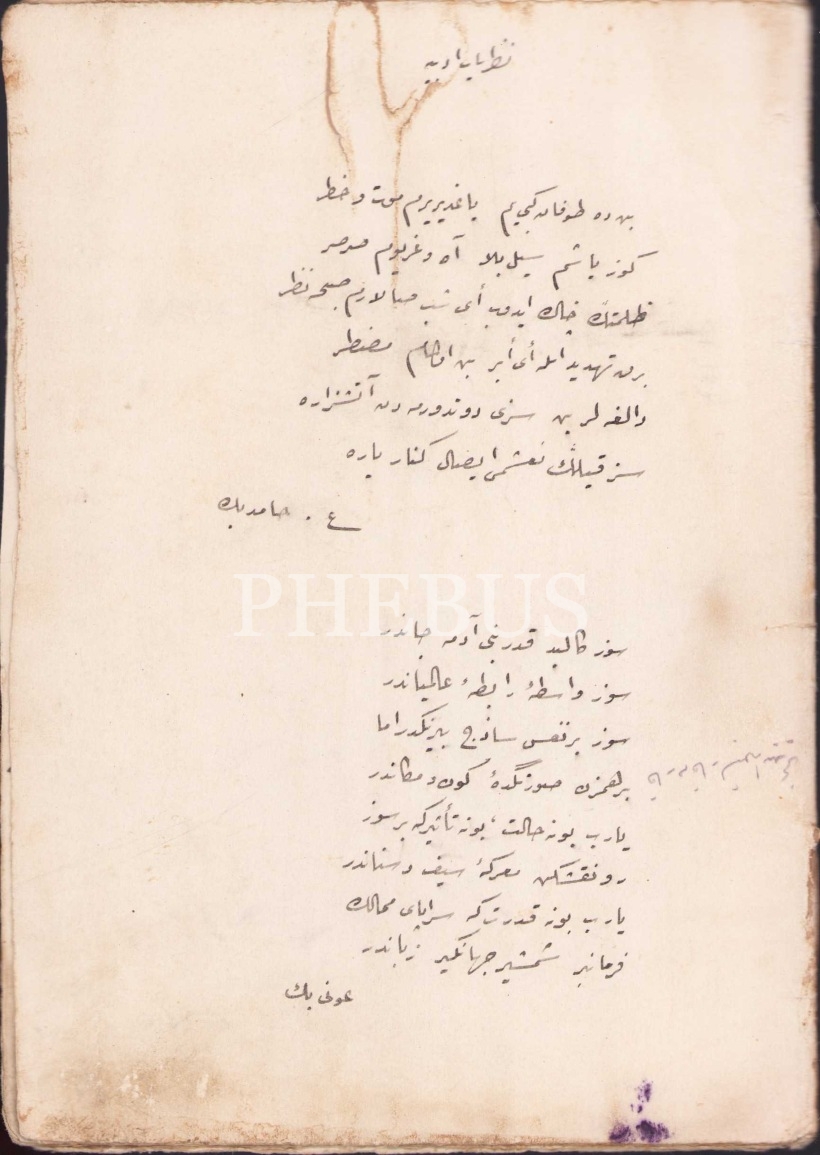 نظریات ادبیه
بن ده طوفان کبی یم یاغدیریرم موت و خطر
کوز یاشم سیل بلا آه و غریوم صرصر
ظلمتڭ چاك ایدوب أی شب صالارم صبحه نظر
برق تهدید ایله أی أبر بن اولمام مضطر
دالغه لر بن سزی دوندورمه دن آتشزاره
سز قیلڭ نعشمی ایصال کنار یاره
ع . حامد بك
PHEBUS
سوز کالبد قدر بنی آدمه جاندر
سوز واسطهٔ رابطهٔ عالمیاندر
سوز بر نفس ساذج بیرنکدر اما
برهمزن صورتکدهٔ کون و مکاندر
یارب بو نه حالت، بو نه تأثیر که بر سوز
رونقشکن معرکهٔ سیف و سناندر
یارب بو نه قدرت که سراپای ممالك
فرمانبر شمشیر جهانکیر زباندر
عونی بك